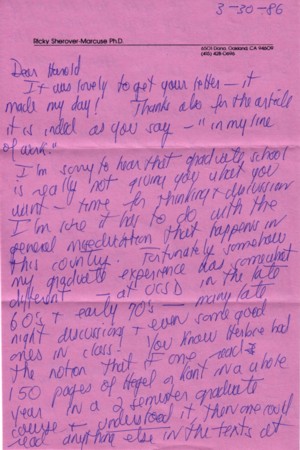 3-30-86
Ricky Sherover-Marcuse Ph.D.
6501 Dana, Oakland, CA 94609
(415) 428-0696
Dear Harold
It was lovely to get your letter — it
made my day! Thanks also for the article
it is indeed as you say — "in my line
of work."
I'm sorry to hear that graduate school
is really not giving you what you
want — time for thinking & discussion
I'm sure it has to do with the
general miseducation that happens in
this country. Fortunately somehow
my graduate experience was somewhat
different — at UCSD in the late
60's & early 70's — many late
night discussions & even some good
ones in class! You know Herbert had
the notion that if one read
150 pages of Hegel or Kant in a whole
year in a 2 semester graduate
course & understood it, then one could
read anything else in the texts at